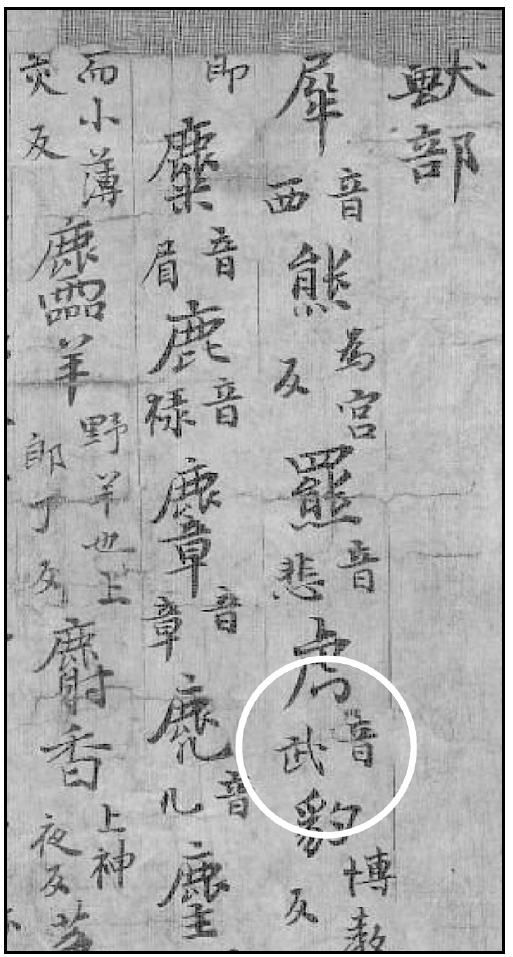 獸部
犀音西熊為宮反羆音悲虎音武豹博教反
即麋音眉鹿音祿麞音章麂音几麈
而小薄交反麢羊野羊也上郎丁反麝香上神夜反